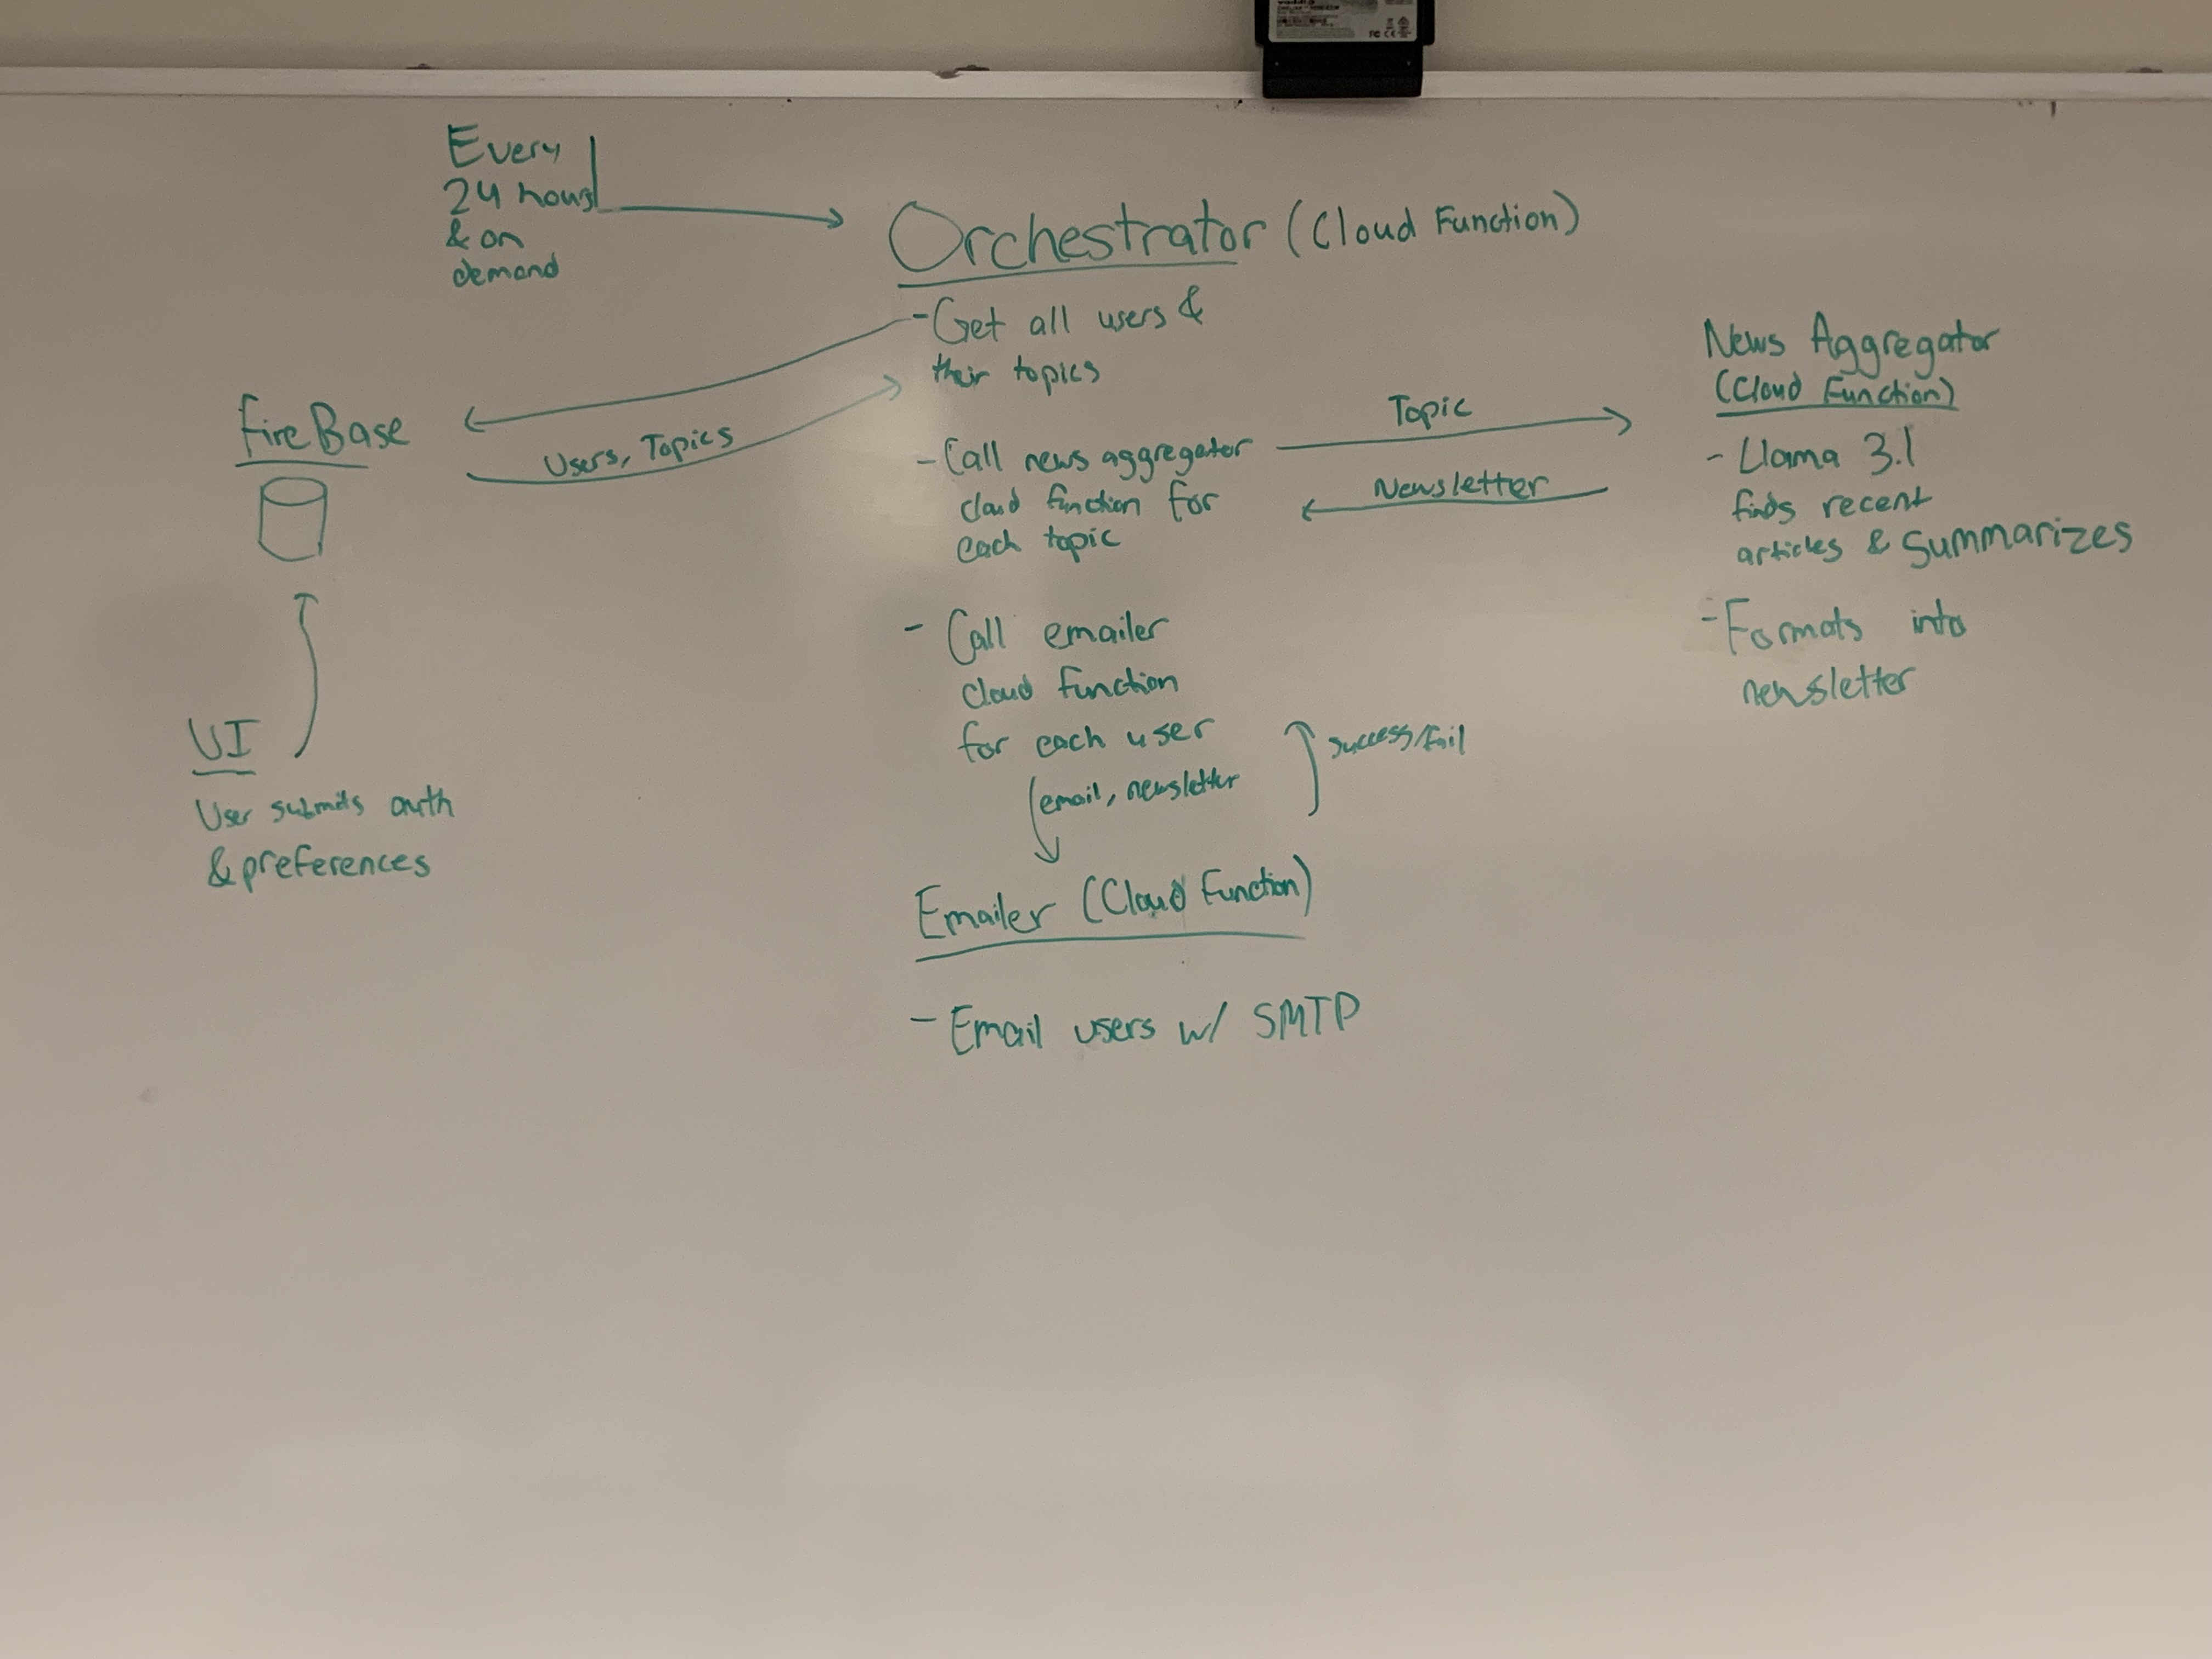 Every
24 hours
& on
demand
Orchestrator (Cloud Function)
- Get all users &
their topics
- Call news aggregator
cloud function for
each topic
- Call emailer
cloud function
for each user
email, newsletter
success/fail
Emailer (Cloud Function)
- Email users w/ SMTP
FireBase
Users, Topics
UI
User submits auth
& preferences
Topic
Newsletter
News Aggregator
(Cloud Function)
- Llama 3.1
finds recent
articles & summarizes
- Formats into
newsletter
FC CE